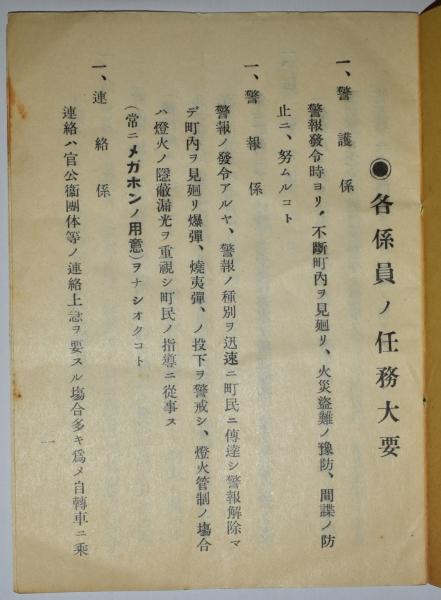 ●各係員ノ任務大要
一、警護係
警報發令時ヨリ、不斷町內ヲ見廻リ、火災盜難ノ豫防、間諜ノ防
止ニ、努ムルコト
一、警報係
警報ノ發令アルヤ、警報ノ種別ヲ迅速ニ町民ニ傳達シ警報解除マ
デ町內ヲ見廻リ爆彈、燒夷彈、ノ投下ヲ警戒シ、燈火管制ノ塲合
ハ燈火ノ隱蔽漏光ヲ重視シ町民ノ指導ニ從事ス
(常ニメガホンノ用意)ヲナシオクコト
一、連絡係
連絡ハ官公衙團体等ノ連絡上急ヲ要スル塲合多キ爲メ自轉車ニ乘
一